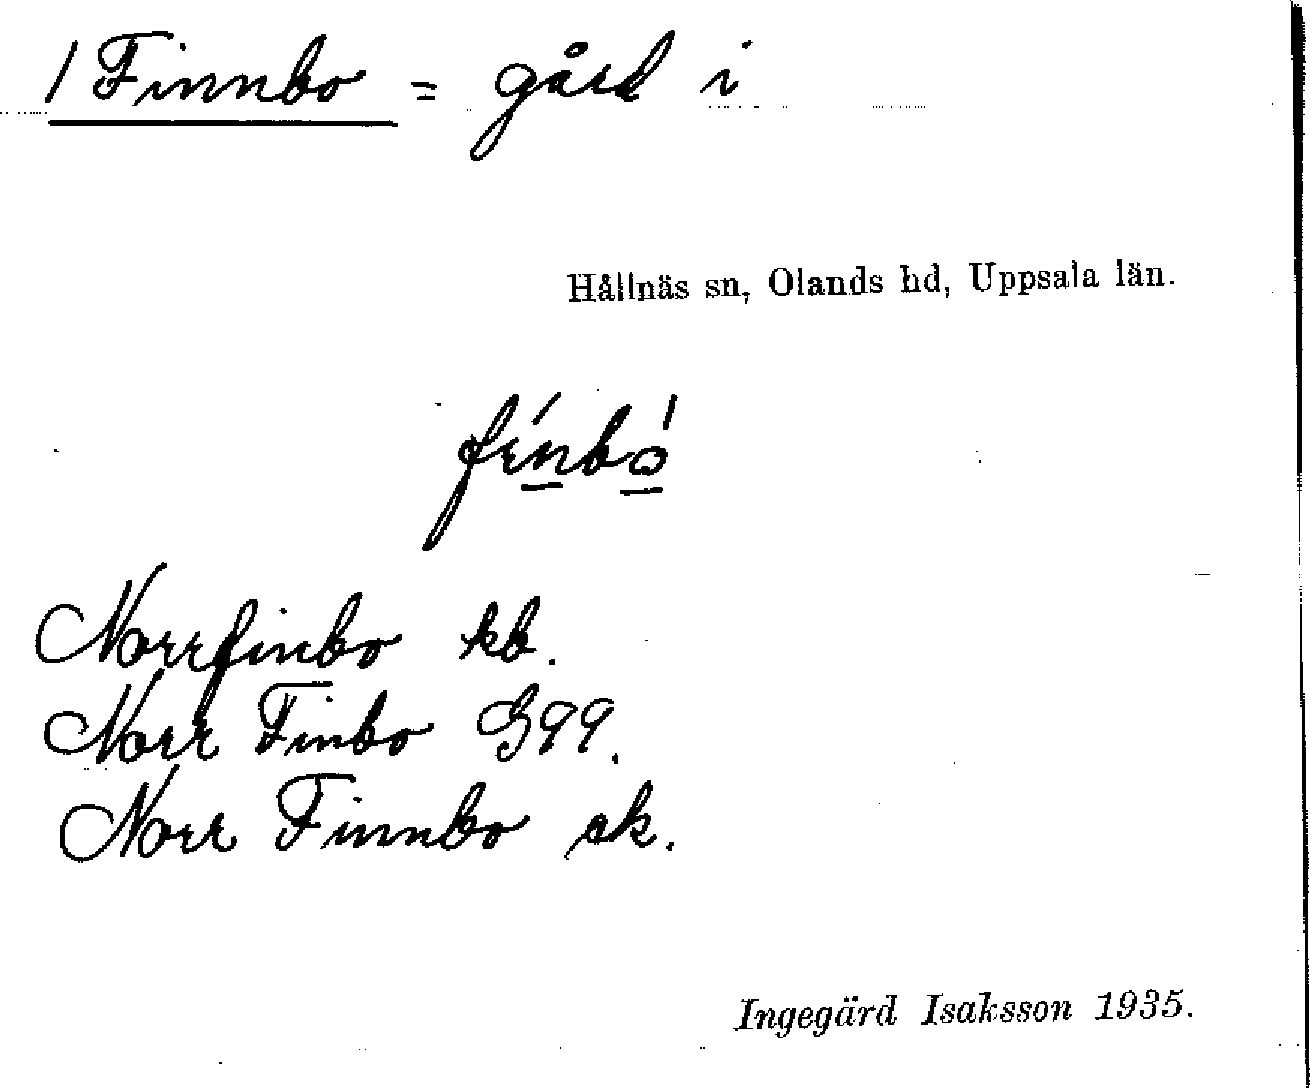 1 Finnbo = gård i
Hållnäs sn, Olands hd, Uppsala län.
Norrfinbo kb.
Norr Finbo G99.
Norr Finnbo ek.
Ingegärd Isaksson 1935.